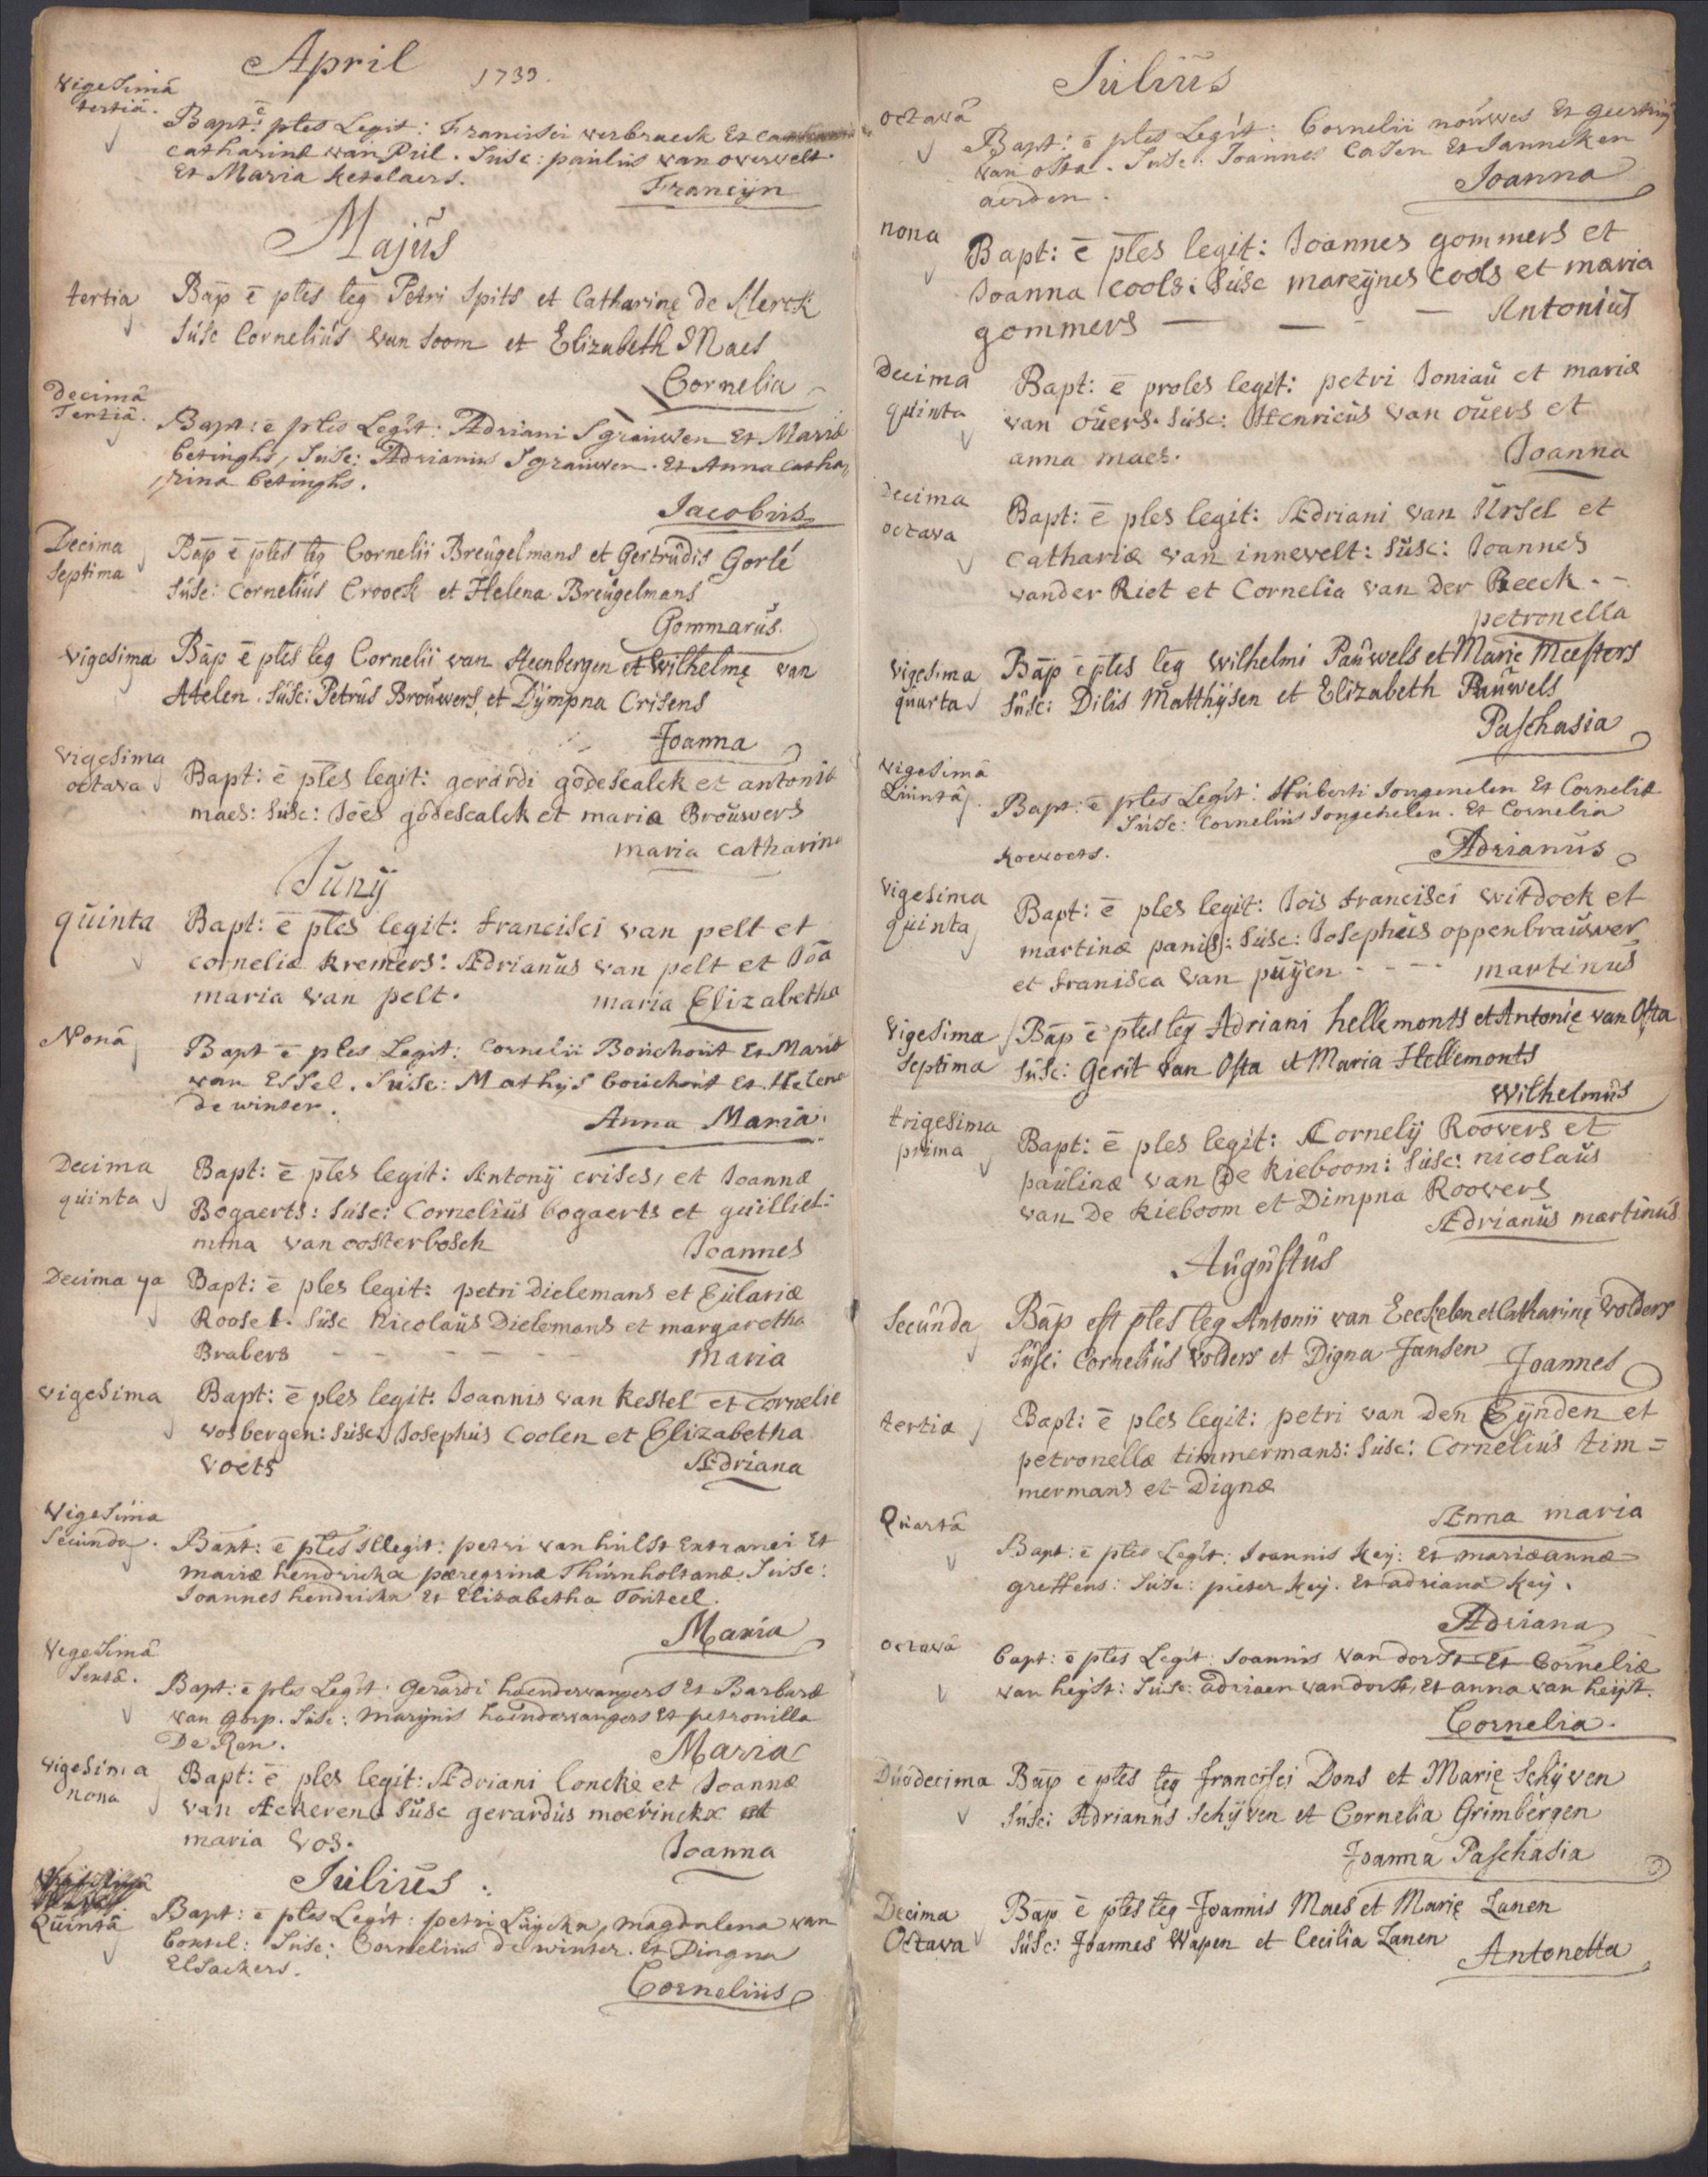 April 1739.
Vigesimâ
tertiâ.
Bapt: ē ples Legit: Francisci verbraeck Et
Catharinæ van Pul. Susc: paulus van overvelt
Et Maria Ketelaers.
Francijn
Majŭs
tertia
Bap ē ples leg Petri Spits et Catharinę de Klerck
Sŭsc Cornelius Van Loom et Elizabeth Maes
Cornelia
Decimâ
Tertiâ.
Bapt: ē ples Legit: Adriani Sgrauwen Et Mariæ
betinghs, Susc: Adrianus Sgrauwen. Et Anna Catha,
,rina betinghs.
Jacobus
Decima
Septima
Bap ē ples leg Cornelii Breŭgelmans et Gertrŭdis Gorlé
Sŭsc: Cornelius Croock et Helena Breŭgelmans
Gommarŭs
Vigesima
Bap ē ples leg Cornelii van Steenbergen et Wilhelmę van
Atelen. Sŭsc: Petrŭs Broŭwers, et Dÿmpna Crisens
Joanna
Vigesima
octava
Bapt: ē ples legit: gerardi godescalck et antoniæ
maes: Susc: Joēs godescalck et maria Broŭwers
maria catharina
Junÿ
quinta
Bapt: ē ples legit: francisci van pelt et
corneliæ kremers: Adrianŭs van pelt et Joā
maria van pelt.
maria Elizabetha
Nonâ
Bapt ē ples Legit: Cornelii Bouchout Et Mariæ
van Essel. Susc: Mathijs bouchout Et Helena
de winter.
Anna Maria.
Decima
quinta
Bapt: ē ples legit: Antonÿ crises, et Joannæ
Bogaerts: Susc: Cornelius bogaerts et guilliel:
mina van oosterbosch
Joannes
Decima 9a
Bapt: ē ples legit: petri Dielemans et Eulariæ
Roosel. Susc Nicolaŭs Dielemans et margaretha
Brabers - - - - - -
maria
vigesima
Bapt: ē ples legit: Joannis van kestel et Corneliæ
vosbergen: Susc: Josephus Coolen et Elizabetha
Voets
Adriana
Vigesima
Secunda.
Bapt: ē ples illegit: petri van hulst Extranei Et
mariæ hendrickx pæregrinæ Thurnholtanæ. Susc:
Joannes hendrickx Et Elizabetha Tonteel.
Maria
Vegesimâ
Sextâ.
Bapt: ē ples Legit: Gerardi haendervangers Et Barbaræ
van Gorp. Susc: Marijnis haendervangers Et petronilla
De Ren.
Maria
vigesima
nona
Bapt: ē ples legit: Adriani loncke et Joannæ
van Ackeren. Susc gerardŭs moerinckx et
maria Vos.
Joanna
Juliŭs
Quintâ
Bapt: ē ples Legit: petri Luyckx, magdalena van
boxtel: Susc: Cornelius de winter. Et Dingna
Elsackers.
Cornelius
Juliŭs
octavâ
Bapt: ē ples Legit: Cornelii nouwes Et geertruÿ
van osta. Susc: Joannes Casen Et Janneken
aerden.
Joanna
nona
Bapt: ē ples legit: Joannes gommers et
Joanna cools: Sŭsc mareÿnes Cools et maria
gommers — — - —
Antoniŭs
Decima
quinta
Bapt: ē proles legit: petri Joniaŭ et mariæ
van oŭers. Susc: Henricŭs van oŭers et
anna maes.
Joanna
Decima
octava
Bapt: ē ples legit: Adriani van Ursel et
cathariæ van innevelt: Sŭsc: Joannes
vander Riet et Cornelia van der Beeck. -
petronella
Vigesima
quarta
Bap ē ples leg Wilhelmi Paŭwels et Marię Meesters
Sŭsc: Dilis Matthÿsen et Elizabeth Paŭwels
Paschasia
Vigesimâ
Quintâ.
Bapt: ē ples Legit: Huberti Jongenelen Et Corneliæ
Susc: Cornelius Jongehelen. Et Cornelia
Koevoets.
Adrianus
Vigesima
quinta
Bapt: ē ples legit: Jois francisci witdoek et
martinæ panis: Susc: Josephus oppenbraŭwer
et franisca van pŭÿen - - - -
martinŭs
Vigesima
Septima
Bap ē ples leg Adriani hellemonts et Antonię van Osta
Sŭsc: Gerit Van Osta et Maria Hellemonts
Wilhelmŭs
trigesima
prima
Bapt: ē ples legit: Cornelÿ Roovers et
paulinæ van De kieboom: Susc: nicolaŭs
van De kieboom et Dimpna Roovers
Adrianŭs martinŭs
Aŭgŭstŭs
Secŭnda
Bap est ples leg Antonii van Eeckelen et Catharinę Volders
Sŭsc: Cornelius Volders et Digna Jansen
Joannes
tertia
Bapt: ē ples legit: petri van Den Eÿnden et
petronellæ timmermans: Susc: Cornelius tim=
mermans et Dignæ
Anna maria
Quartâ
Bapt: ē ples Legit: Joannis Keij: Et mariæannæ
greffens: Susc: pieter Keij. Et adriana Keij.
Adriana
octavâ
Bapt: ē ples Legit: Joannis van dorst Et Corneliæ
van heijst: Susc: adriaen van dorst, Et anna van heijst.
Cornelia.
Dŭodecima
Bap ē ples leg Francisci Dons et Marię Schÿven
Sŭsc: Adrianŭs Schÿven et Cornelia Grimbergen
Joanna Paschasia
Decima
Octava
Bap ē ples leg Joannis Maes et Marię Lanen
Sŭsc: Joannes Wapen et Cecilia Lanen
Antonetta